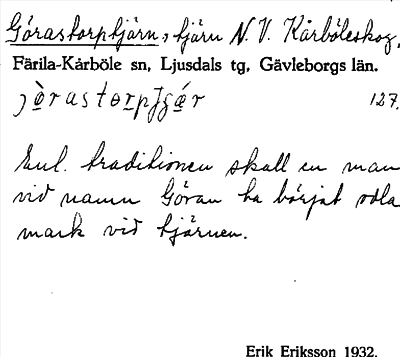 Görastorptjärn, tjärn N.V. Kårböleskog,
Färila-Kårböle sn, Ljusdals tg, Gävleborgs län.
127.
Enl. traditionen skall en man
vid namn Göran ha börjat odla
mark vid tjärnen.
Erik Eriksson 1932.